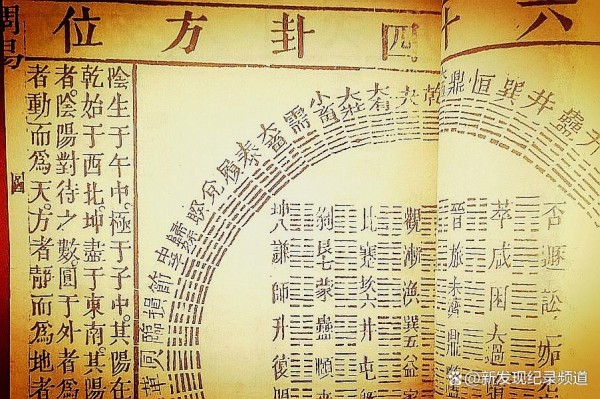 六十四卦方位
升
蠱
井
巽
恒
鼎
乾
夬
大有
大壯
小畜
需
大畜
泰
履
兌
睽
歸妹
中孚
節
損
臨
同人
革
否遯訟姤
萃咸困大過
晉旅未濟鼎
觀漸渙巽五益家
比蹇坎六井屯
剝艮七蒙蠱頤
坤八謙師升復
陰生于午中。極于子中。其陽在
乾始于西北。坤盡于東南。其陽
者。陰陽對待之數。圓于外者爲
者動而爲天。方者靜而爲地者
周易
圖
@新发现纪录频道